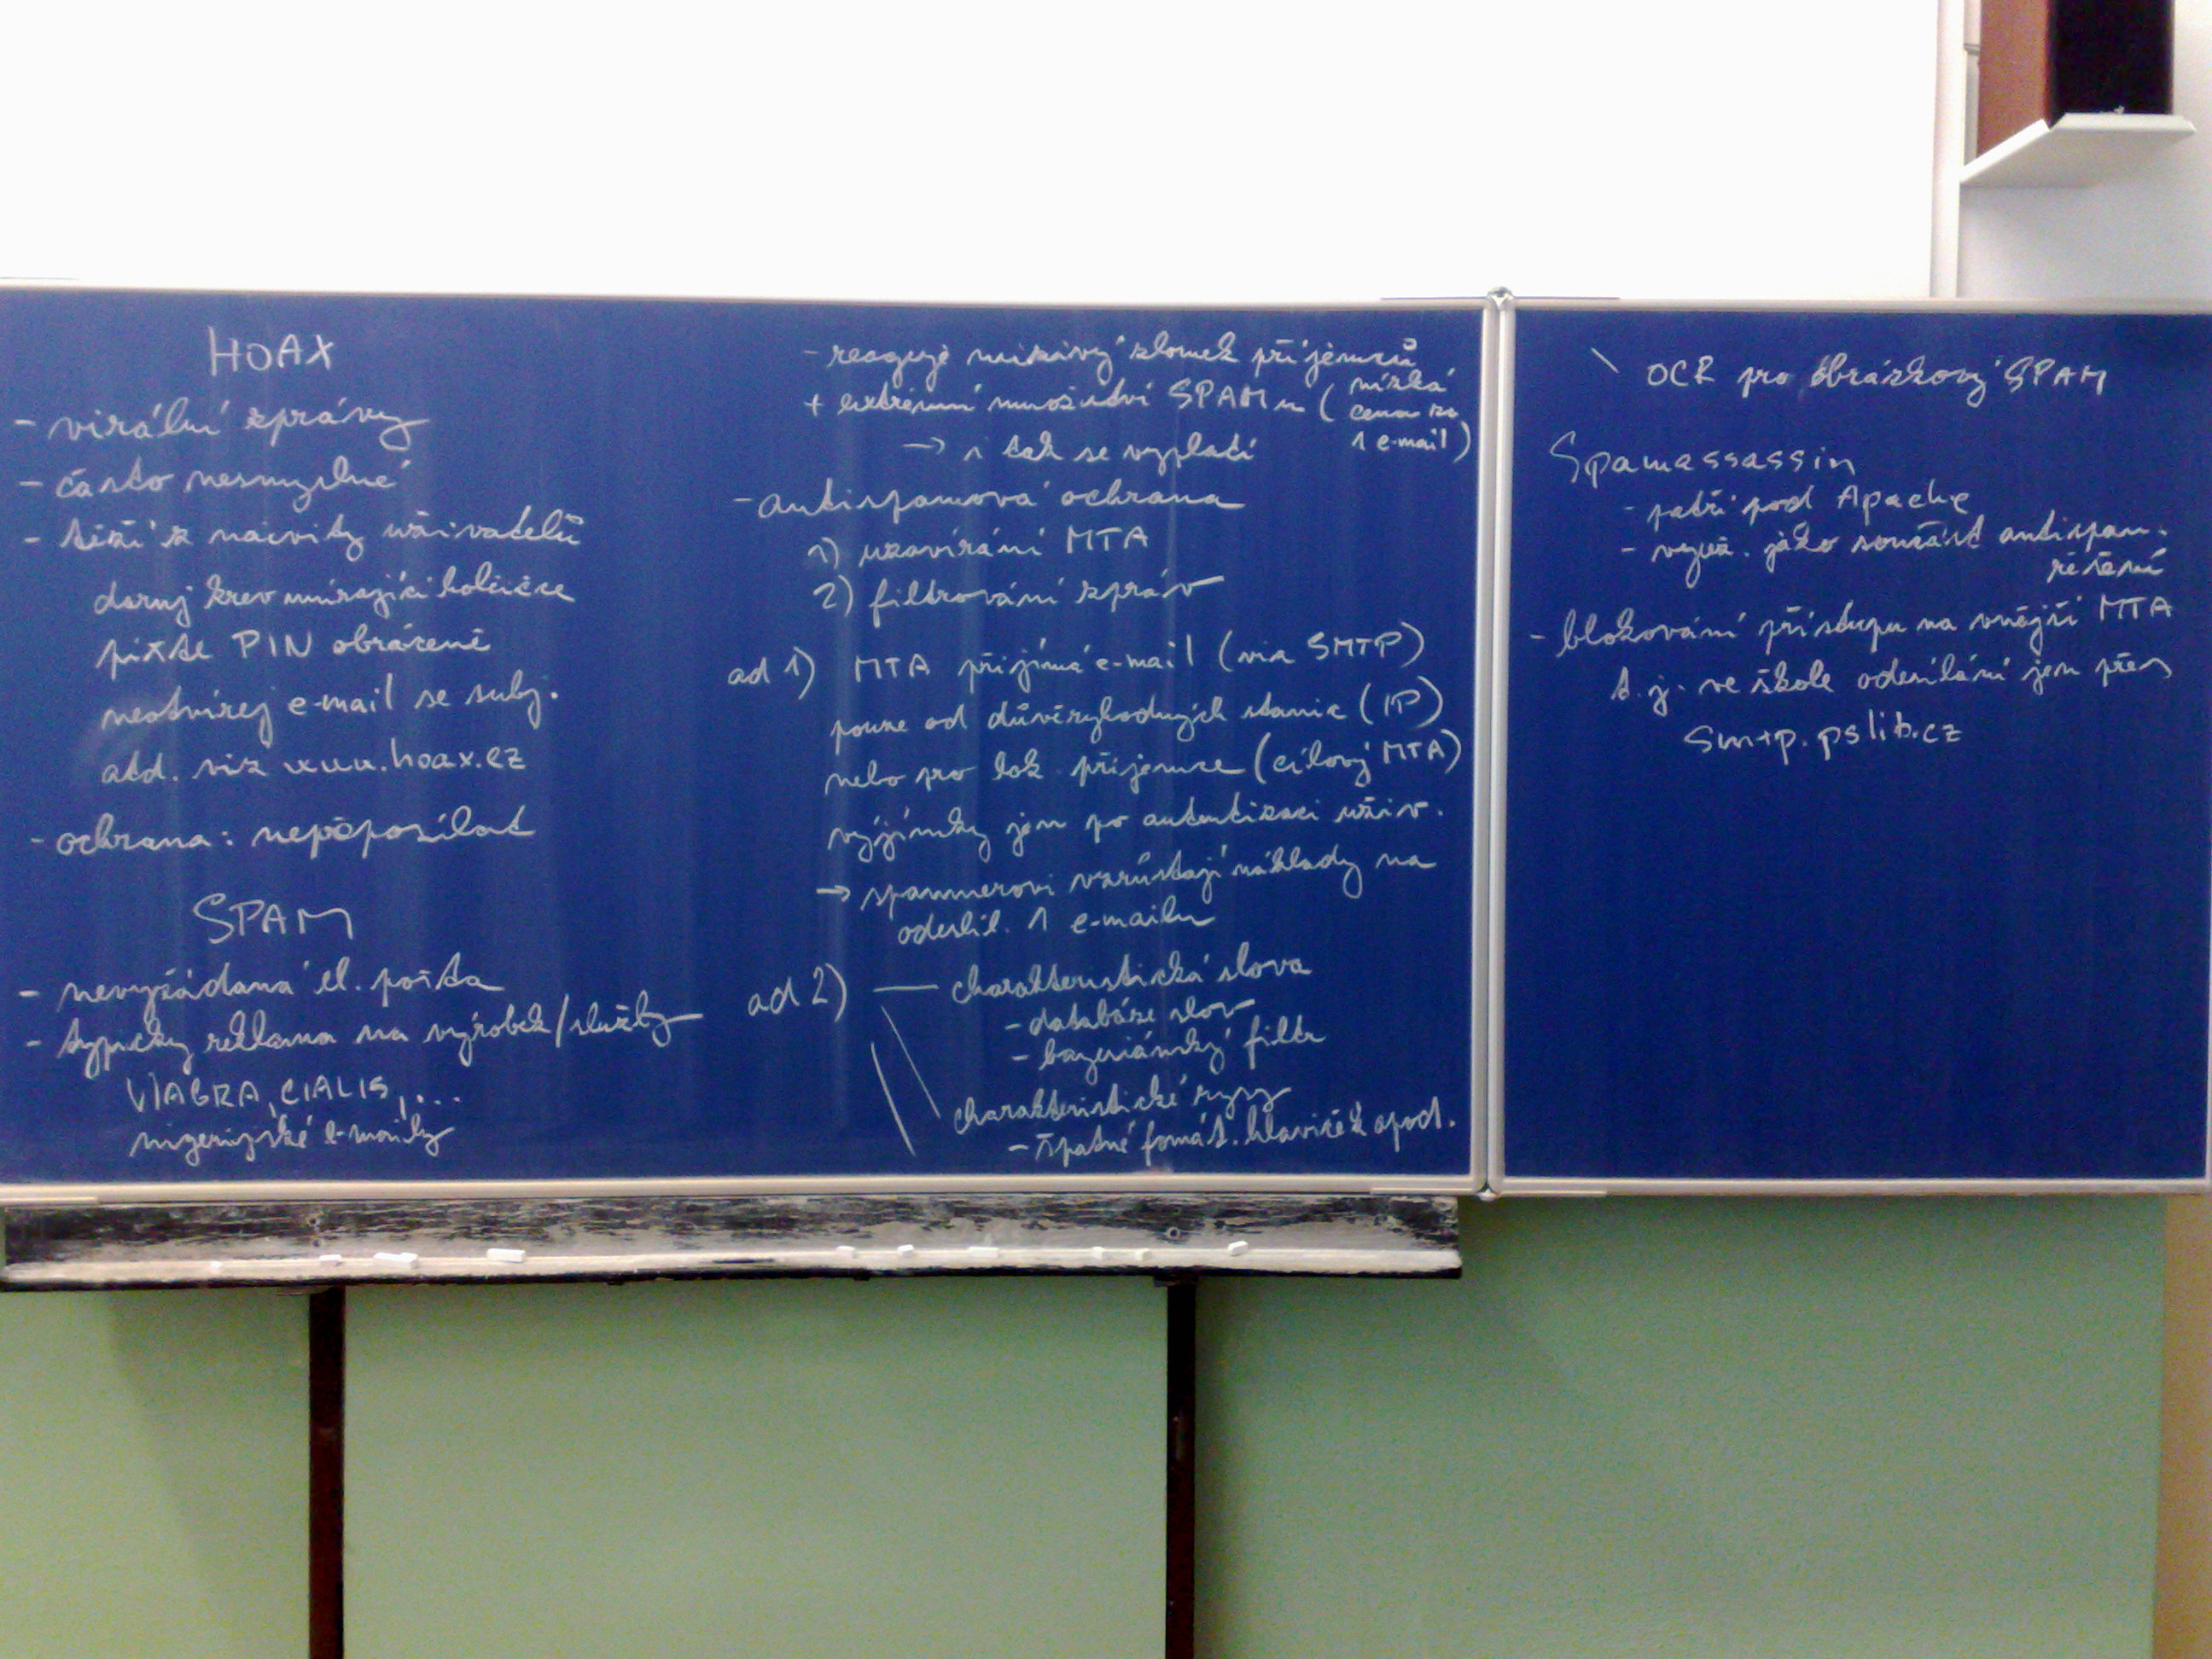 HOAX
- virální zprávy
- často nesmyslné
- těží z naivity uživatelů
daruj krev umírající holčičce
pište PIN obráceně
neotvírej e-mail se subj.
atd. viz www.hoax.cz
- ochrana: nepřeposílat
SPAM
- nevyžádaná el. pošta
- typicky reklama na výrobek/služby
VIAGRA, CIALIS, ...
nigerijské e-maily
- reaguje mizivý zlomek příjemců
+ extrémní množství SPAMu (nízká
cena za
1 e-mail)
→ i tak se vyplatí
- antispamová ochrana
1) uzavírání MTA
2) filtrování zpráv
ad 1) MTA přijímá e-mail (via SMTP)
pouze od důvěryhodných stanic (IP)
nebo pro lok. příjemce (cílový MTA)
výjimky jen po autentizaci uživ.
→ spammerovi vzrůstají náklady na
odeslá. 1 e-mailu
ad 2) charakteristická slova
- databáze slov
- bayesiánský filtr
charakteristické rysy
- špatné formát. hlaviček apod.
OCR pro obrázkový SPAM
Spamassassin
- patří pod Apache
- využ. jako součást antispam.
řešení
- blokování přístupu na vnější MTA
t.j. ve škole odesílání jen přes
smtp.pslib.cz